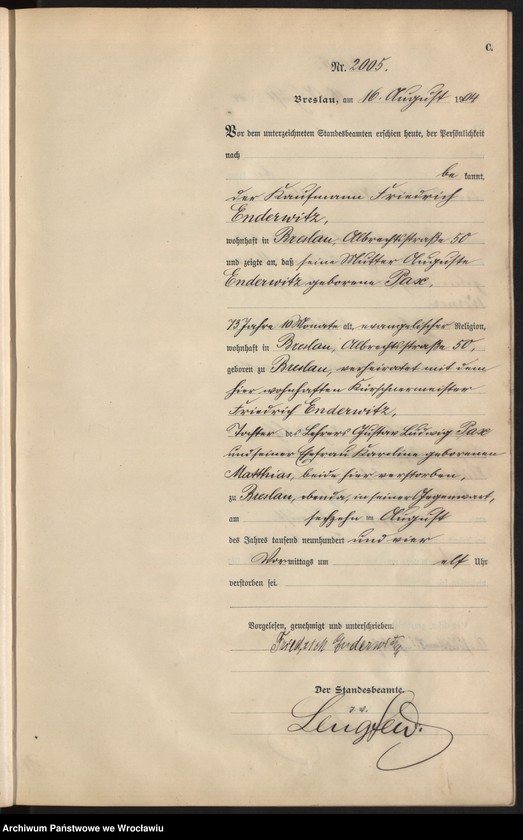 C.
Nr. 2005.
Breslau, am 16. August 1904
Vor dem unterzeichneten Standesbeamten erschien heute, der Persönlichkeit
nach
be kannt,
der Kaufmann Friedrich
Enderwitz,
wohnhaft in Breslau, Albrechtsstraße 50
und zeigte an, daß seine Mutter Auguste
Enderwitz geborene Pax,
73 Jahre 10 Monate alt, evangelischer Religion,
wohnhaft in Breslau, Albrechtsstraße 50,
geboren zu Breslau, verheiratet mit dem
hier wohnhaften Kürschnermeister
Friedrich Enderwitz,
Tochter des Lehrers Gustav Ludwig Pax
und seiner Ehefrau Karoline geborenen
Matthias, beide hier verstorben,
zu Breslau, ebenda, in seiner Gegenwart,
am sechzehn = August
des Jahres tausend neunhundert und vier
Vormittags um elf Uhr
verstorben sei.
Vorgelesen, genehmigt und unterschrieben.
Friedrich Enderwitz
Der Standesbeamte.
Z. V.
Lengfeld.
Archiwum Państwowe we Wrocławiu